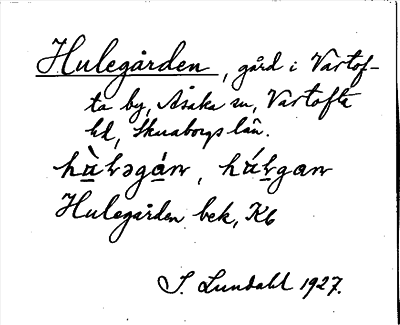 Hulegården, gård i Vartof-
ta by, Åsaka sn, Vartofta
hd, Skaraborgs län.
hùləgán, húlgan
Hulegården bek, K6
S. Lundahl 1927.